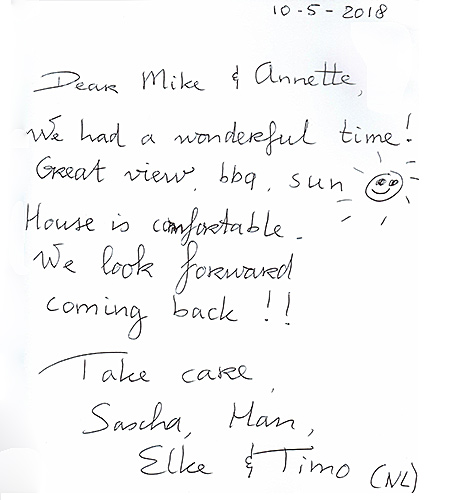 10-5-2018
Dear Mike & Annette,
We had a wonderful time!
Great view, bbq, sun
House is comfortable.
We look forward
coming back !!
Take care,
Sascha, Han,
Elke & Timo (NL)